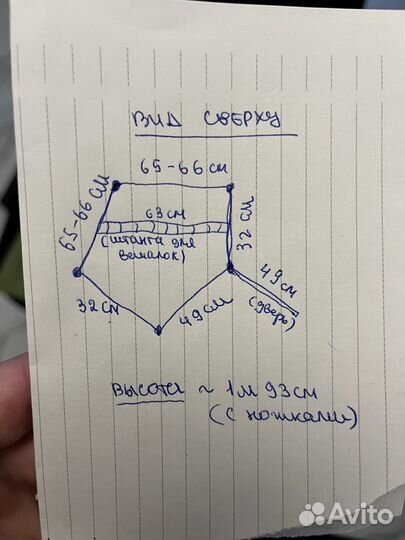 ВИД СВЕРХУ
65-66 см
65-66 см
63 см
(штанга для
вешалок)
32 см
49 см
(дверь)
32 см
49 см
Высота ~ 1 м 93 см
(с ножками)
Avito